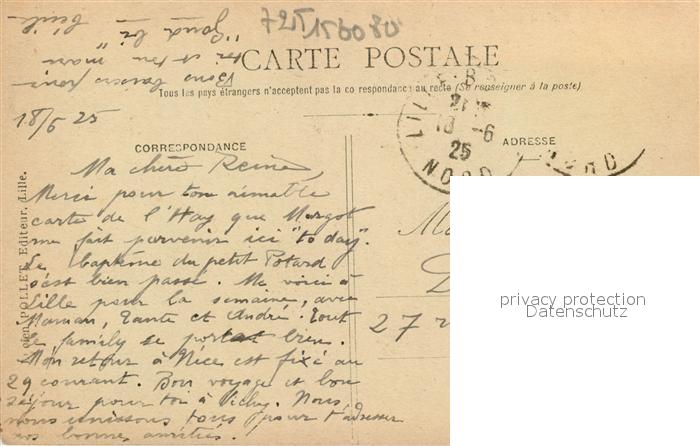 725T156080
Bons baisers pour
toi et ton "mari
"Good bi"
CARTE POSTALE
Tous les pays étrangers n'acceptent pas la correspondance au recto (Se renseigner à la poste)
18/6 25
CORRESPONDANCE
ADRESSE
LILLE
21
18 -6
25
NORD
NORD
POLLET, Editeur, Lille.
Ma chère Reine,
Merci pour ton aimable
carte de l'Hay que Margot
me fait parvenir ici "to day".
Le baptême du petit Potard
s'est bien passé. Me voici à
Lille pour la semaine, avec
Maman, Tante et André. Tout
le family se portent bien.
Mon retour à Nice est fixé au
29 courant. Bon voyage et bon
séjour pour toi à Vichy. Nous
nous unissons tous pour t'adresser
nos bonnes amitiés.
27
privacy protection
Datenschutz